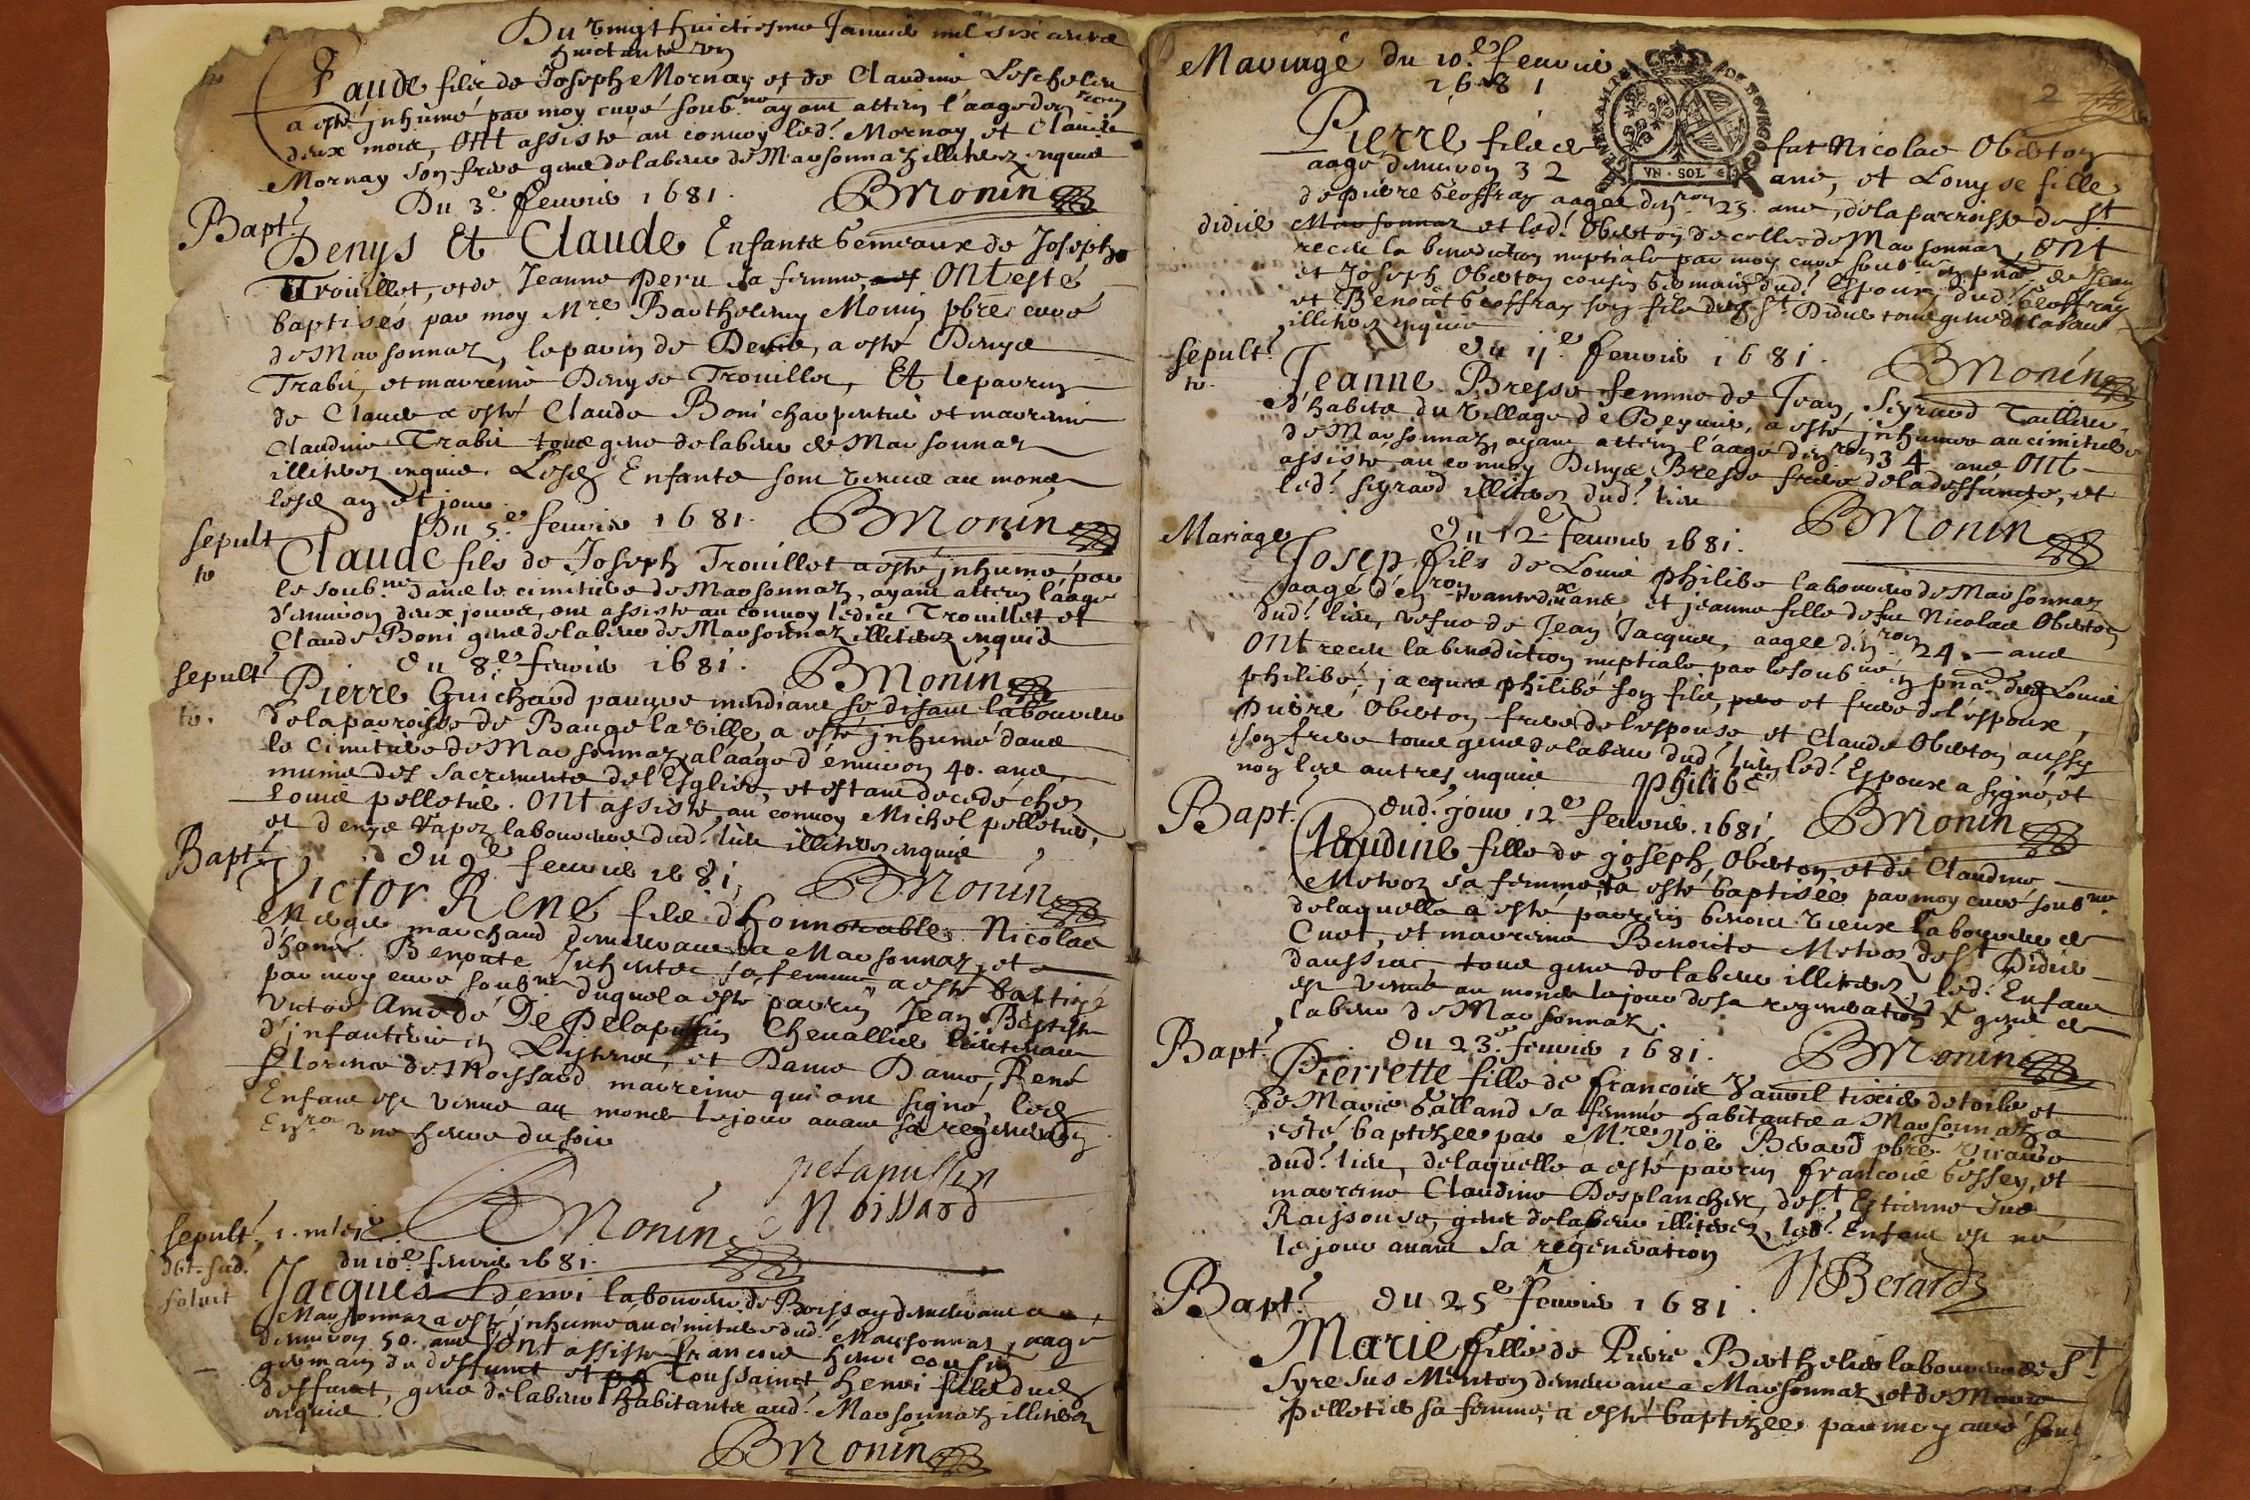 Du vingt huictiesme Januier mil six cent
huictante un
Claude filz de Joseph Mornay et de Claudine
a esté jnhumé par moy curé soub.né ayant attein l'aage d'en.ron
deux mois, ont assisté au conuoy led.t Mornay et Claude
Mornay son frere gens de labeur de Marsonnaz illiterez enquis
BMonin
Bapt.
Du 3.e feurier 1681.
Denys Et Claude Enfants gemeaux de Joseph
Trouillet, et de Jeanne Peru sa femme, ont esté
baptisés par moy M.re Barthelemy Monin pbre curé
de Marsonnaz, le parin de Denis, a esté Denys
Trabu, et mareine Denyse Trouillet, Et le parrin
de Claude a esté Claude Boni charpentier et mareine
Claudine Trabu tous gens de labeur de Marsonnaz
illiterez enquis. Lesd. Enfants sont venus au monde
lesd. an et jour.
BMonin
sepult.
Du 5.e feurier 1681.
Claude fils de Joseph Trouillet a esté jnhumé par
le soub.né dans le cimitiere de Marsonnaz, ayant attein l'aage
d'enuiron deux jours, ont assisté au conuoy ledit Trouillet et
Claude Boni gens de labeur de Marsonnaz illiterez enquis
BMonin
sepult.
du 8.e feurier 1681.
Pierre Guichard pauure mendiant se disant laboureur
de la parroisse de Baugé la ville a esté jnhumé dans
le Cimitiere de Marsonnaz, a l'aage d'enuiron 40. ans,
munie des sacrements de l'Esglise, et estant decedé chez
Louis pelletier. Ont assisté au conuoy Michel pelletier,
et denys Vapez laboureurs dud.t lieu illiterez enquis
BMonin
Bapt.
du 9.e feurier 1681,
Victor René filz d'honnorable Nicolas
marchand demeurant a Marsonnaz, et
d'hon.e Benoite sa femme a esté baptizé
par moy curé soub.né duquel a esté parrin Jean Baptiste
Victor Amedé De Pelapussin Cheuallier lieutenant
d'infanterie et Dame Dame, René
Florence de Moissard mareine qui ont signé, led.
Enfant est venu au monde le jour auant sa regeneration
Enu.ron une heure du soir
pelapussin
BMonin
Moissard
sepult.
du 10.e feurier 1681.
soluit
Jacques Henri laboureur de Boissey demeurant a
Marsonnaz a esté jnhumé au cimitiere dud.t Marsonnaz, aagé
d'enuiron 50. ans Sont assisté francois henri cousin
germain du deffunct et Toussainct henri fils dud.
deffunct, gens de labeur habitants aud.t Marsonnaz illiterez
enquis.
BMonin
Mariage du 10.e feurier
1681
2
GENERALITE DE BOURGOGNE
VN · SOL
Pierre filz de fut Nicolas Obeton
aagé d'enuiron 32 ans, et Louyse fille
de pierre Geoffray aagée d'en.ron 25. ans, de la parroisse de S.t
didier Marsonnaz et led.t Obeton de celle de Marsonnaz, ont
receu la benediction nuptiale par moy curé soub.né en pn.ce de Jean
et Joseph Obeton cousin germain dud.t Espoux, dud.t Geoffray
et Benoist Geoffray son filz dud. S.t Didier tous gens de labeur
illiterez enquis
BMonin
sepult.
du 11.e feurier 1681.
Jeanne Bresse femme de Jean Seyraud Tailleur
d'habits du village de Beynier, a esté jnhumée au cimitiere
de Marsonnaz, ayant attein l'aage d'en.ron 34 ans Ont
assisté au conuoy Denys Bresse frere de la deffuncte, et
led.t Seyraud illiterez dud.t lieu
BMonin
Mariage
du 12.e feurier 1681.
Josep fils de Louis philibé laboureur de Marsonnaz
aagé d'en.ron trante dix ans et jeanne fille de fut Nicolas Obeton
dud.t lieu, vefue de Jean Jacques, aagée d'en.ron 24. ans
ont receu la benediction nuptiale par le soub.né en pn.ce dud. Louis
philibé, jacques philibé son filz, pere et frere de l'espoux,
pierre Obeton frere de l'espouse, et Claude Obeton aussy
son frere tous gens de labeur dud.t lieu, led.t Espoux a signé, et
non les autres enquis
philibé
BMonin
Bapt.
dud.t jour 12.e feurier. 1681,
Claudine fille de joseph Obeton et de Claudine
Metroz sa femme, a esté baptisée par moy curé soub.né
de laquelle a esté parrin benoist vieux laboureur de
Cuet, et mareine Benoite Metroz de S.t Didier
daussiac, tous gens de labeur illiterez, led.t Enfant
est venu au monde le jour de sa regeneration & gens de
labeur de Marsonnaz.
BMonin
Bapt.
du 23.e feurier 1681.
Pierrette fille de francois Vauvil tixier de toile et
de Marie Galland sa femme habitants a Marsonnaz a
esté baptizée par M.re Noë Berard pbre vicaire
dud.t lieu, de laquelle a esté parrin francois Gessey, et
mareine Claudine Desplanches, de S.t Estienne sus
Raissouse, gens de labeur illiterez, led.t Enfant est né
le jour auant sa régénération
NBerard
Bapt.
du 25.e feurier 1681.
Marie fille de Pierre Berthelier laboureur de S.t
Syre sus Menton demeurant a Marsonnaz et de Marie
Pelletier sa femme, a esté baptizée par moy curé soub